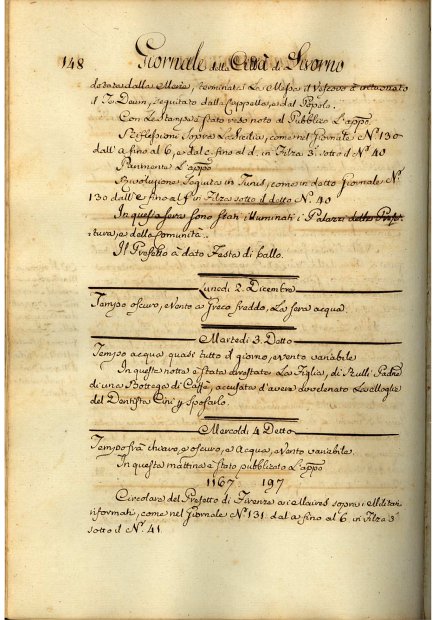 148 Giornale della Città di Livorno
dorata dalla Meria, terminata La Messa il Vescovo à intuonato
il Te Deum, seguitato dalla Cappella, e dal Popolo.
Con Le stampe è stato reso noto al Pubblico L'appo
Riflessioni Sopra La Sicilia, come nel Giornale Nº 130
dall'a fino al b, e dal c fino al d. in Filza 3ª sotto il Nº 40
Parimente L'appo
Rivoluzione Seguita in Tunis, come in detto Giornale Nº
130 dall'e fino al f in Filza sotto il detto Nº. 40
In questa sera sono stati illuminati i Palazzi della Prefet-
tura, e della Comunità.
Il Prefetto à dato Festa di ballo.
Lunedì 2. Dicembre
Tempo oscuro, e Vento a Greco freddo, La sera acqua.
Martedì 3. Detto
Tempo acqua quasi tutto il giorno, e vento variabile
In questa notte è stata arrestata La Figlia, di Rulli Padre
di una Bottega di Caffè, accusata d'avere avvelenato La Moglie
del Dentista Cini p sposarlo.
Mercoldì 4 Detto
Tempo frà chiaro, e oscuro, e Acqua, e Vento variabile.
In questa mattina è stato pubblicato L'appo
1167 197
Circolare del Prefetto di Firenze ai Maires sopra i Militari
riformati, come nel Giornale Nº 131 dal a fino al b. in Filza 3ª
sotto il Nº. 41.